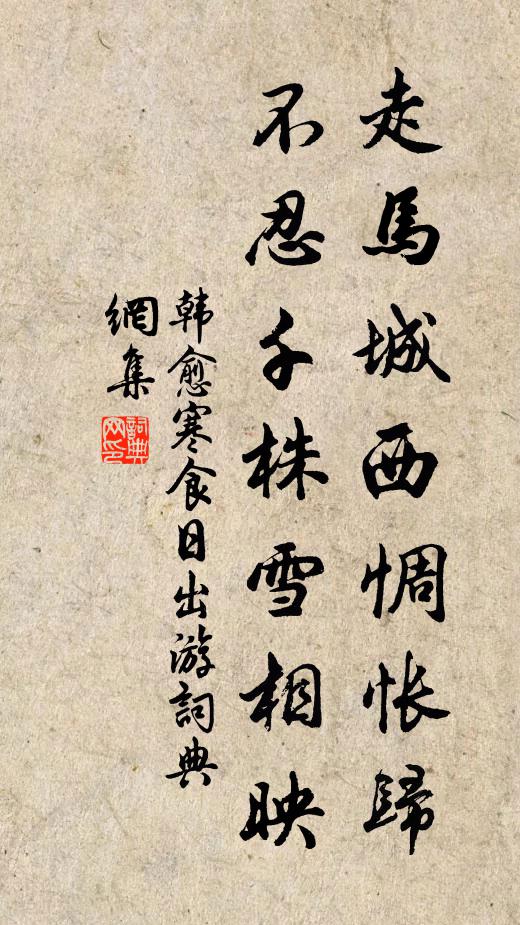 走馬城西惆怅歸
不忍千株雪相映
韩愈寒食日出游詞典
網集
詞典
网印